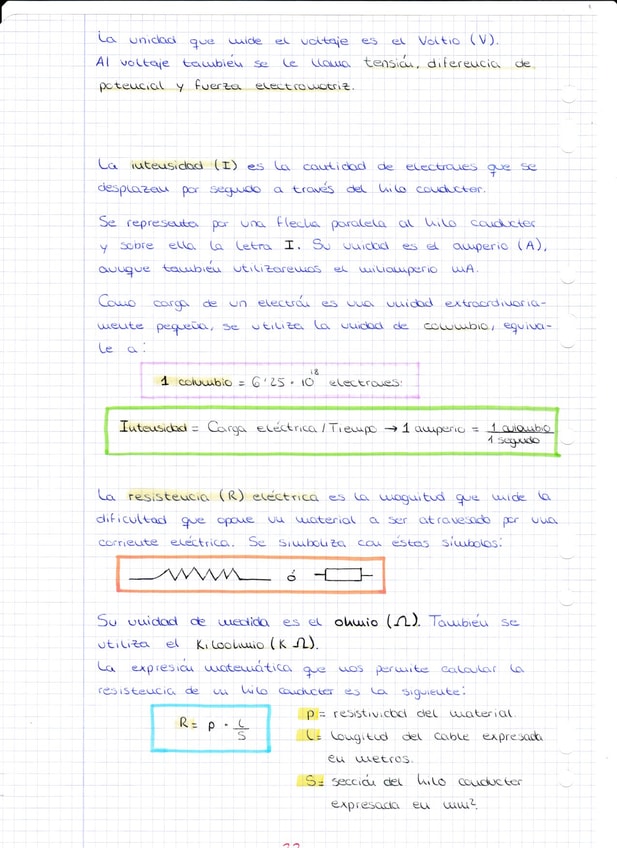 La unidad que mide el voltaje es el Voltio (V).
Al voltaje también se le llama tensión, diferencia de
potencial y fuerza electromotriz.
La intensidad (I) es la cantidad de electrones que se
desplazan por segundo a través del hilo conductor.
Se representa por una flecha paralela al hilo conductor
y sobre ella la letra I. Su unidad es el amperio (A),
aunque también utilizaremos el miliamperio mA.
Como carga de un electrón es una unidad extraordinaria-
mente pequeña, se utiliza la unidad de columbio, equiva-
le a:
1 columbio = 6'25 · 10¹⁸ electrones.
Intensidad = Carga eléctrica / Tiempo → 1 amperio = 1 columbio / 1 segundo
La resistencia (R) eléctrica es la magnitud que mide la
dificultad que opone un material a ser atravesado por una
corriente eléctrica. Se simboliza con éstos símbolos:
ó
Su unidad de medida es el ohmio (Ω). También se
utiliza el Kiloohmio (K Ω).
La expresión matemática que nos permite calcular la
resistencia de un hilo conductor es la siguiente:
R = p · L / S
p = resistividad del material.
L = longitud del cable expresada
en metros.
S = sección del hilo conductor
expresada en mm².